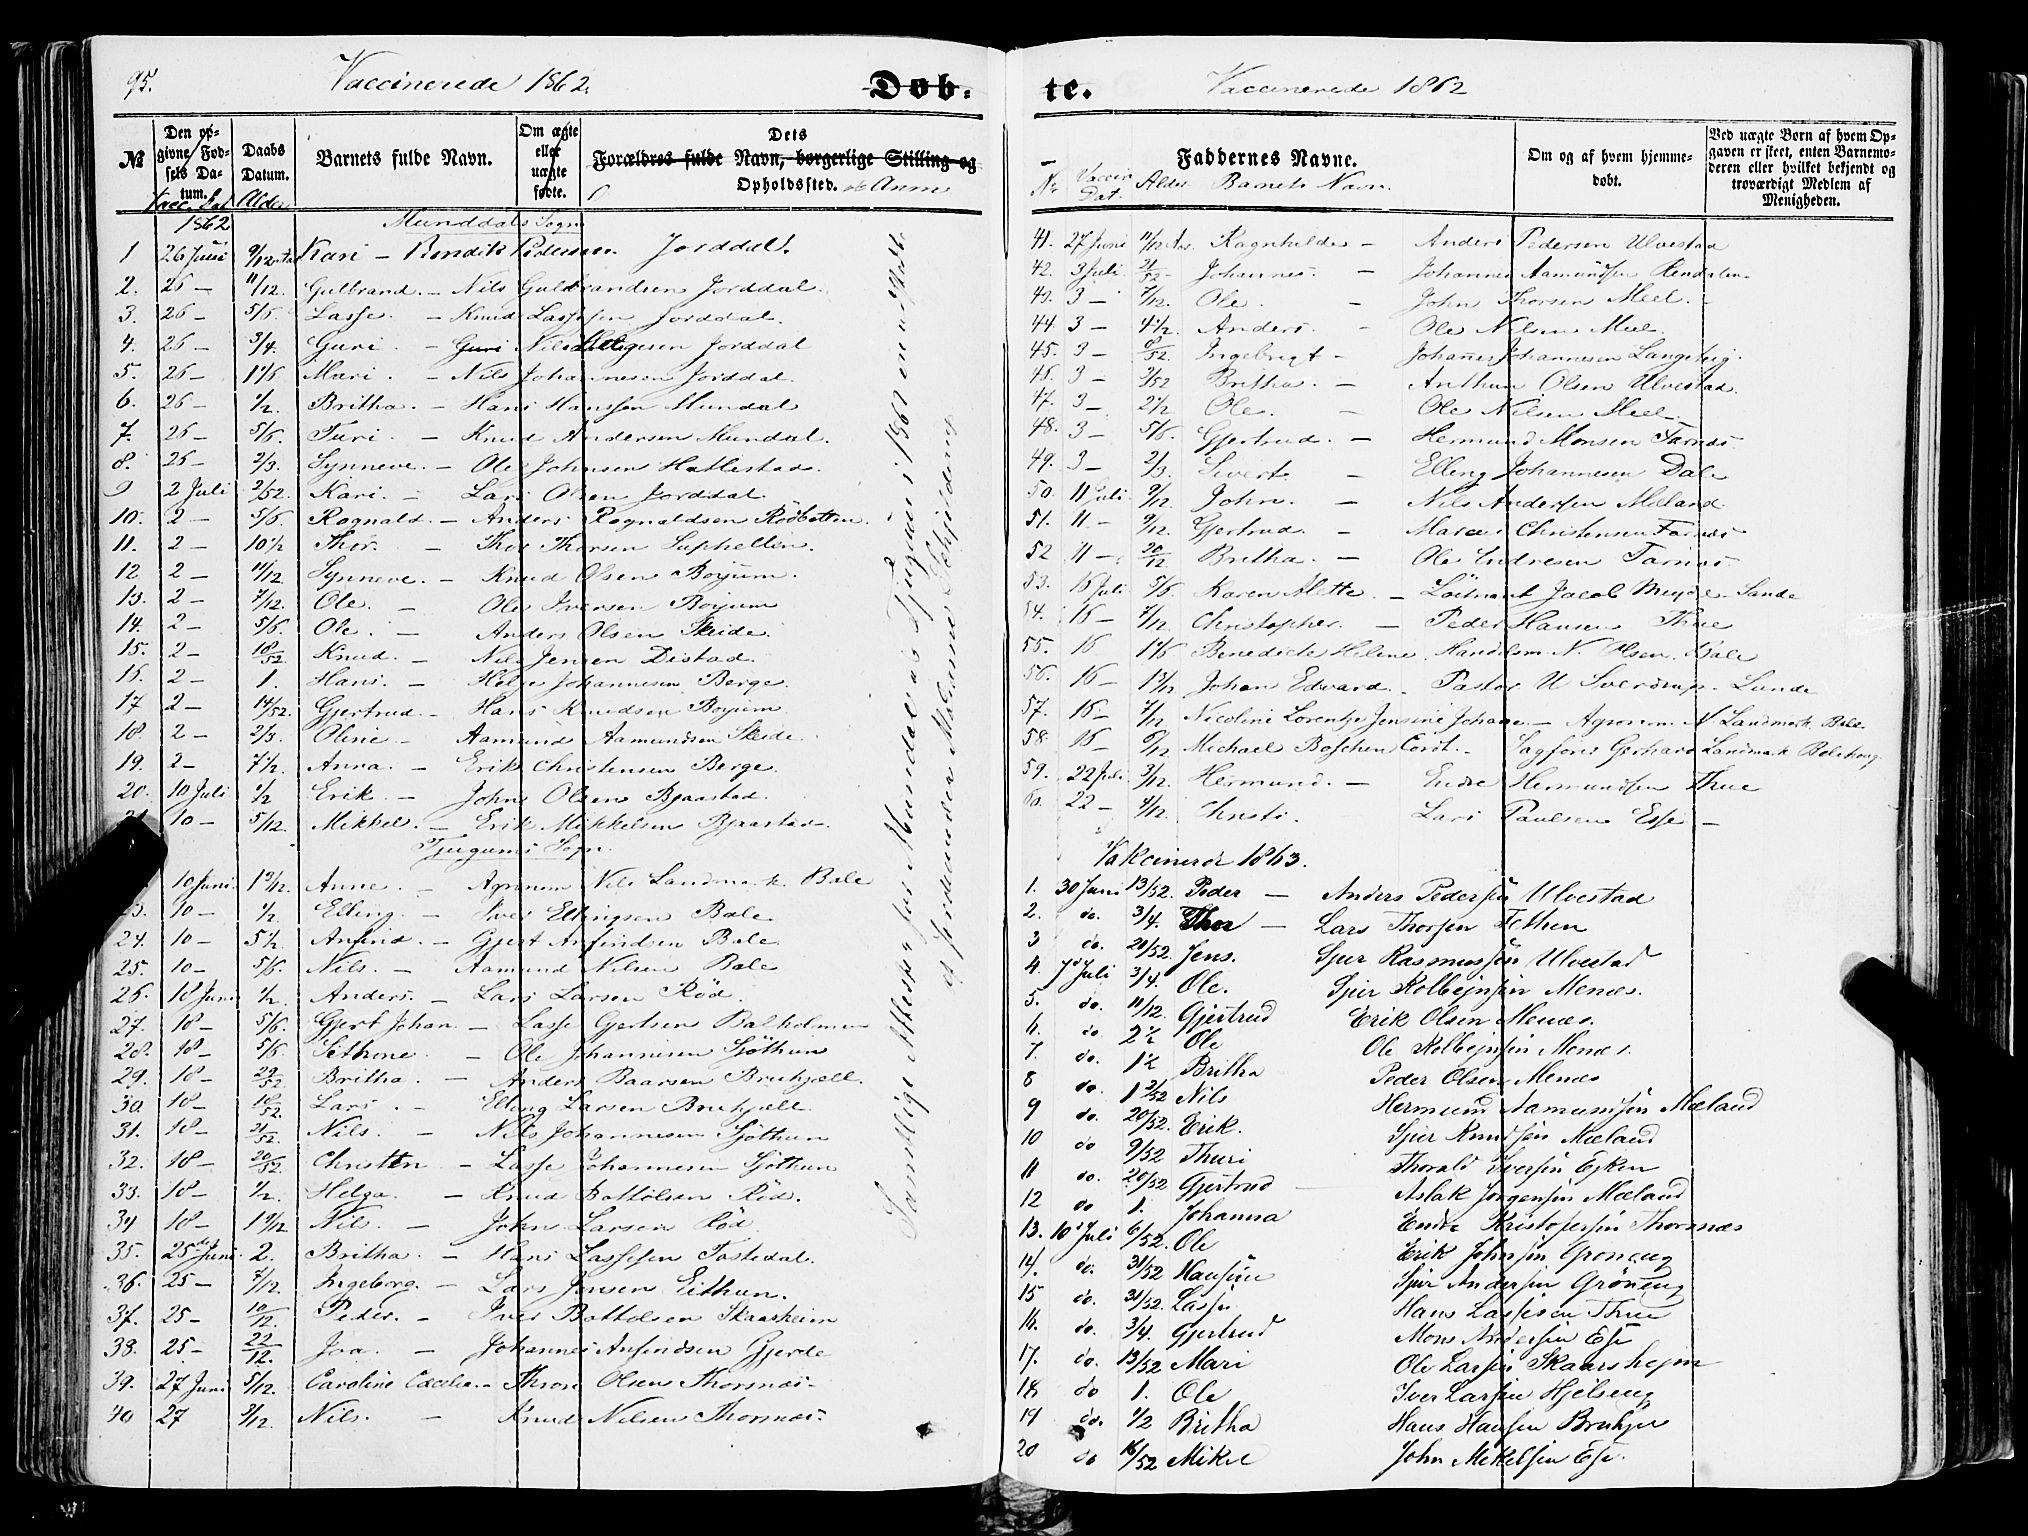 95.
Vaccinerede 1862.
Døb-
№
Den opgivne Fødsels Datum.
Vacc. Dat
Daabs Datum.
Alder
Barnets fulde Navn.
Om ægte eller uægte fødte.
Dets Forældres fulde Navn, borgerlige Stilling og Opholdssted.
1862
Munddals Sogn
1 26 Juni 9/12 Aar Kari – Bendik Pedersen Jorddal.
2. 26 – 11/12. Gulbrand. – Nils Guldbrandsen Jorddal.
3. 26 – 5/6 Lasse. – Knud Lassesen Jorddal.
4. 26 – 3/4. Guri. – Guri Nils Helgesen Jorddal
5. 26 – 1 1/6 Mari. – Nils Johannesen Jorddal.
6. 26 – 1/2. Britha. – Hans Hanssen Mundal
7. 26 – 5/6. Turi. – Knud Andersen Mundal.
8. 26 – 2/3. Synneve. – Ole Johnsen Hatlestad.
9 2 Juli 3/52. Kari. – Lars Olsen Jorddal
10. 2 – 5/6. Rognald. – Anders Rognaldsen Rödbotten.
11. 2 – 10 1/2 Thor. – Thor Thorsen Suphellen.
12 2 – 11/12 Synneve. – Knud Olsen Boyum.
13. 2 – 7/12. Ole. – Ole Iversen Boyum
14. 2 – 5/6. Ole. – Anders Olsen Skeide.
15. 2 – 18/52 Knud. – Nils Jensen Distad.
16. 2 – 1. Hans. – Helge Johannesen Berge.
17 2 – 14/52. Gjertrud. – Hans Knudsen Boyum.
18. 2 – 2/3. Oline – Aamund Aamundsen Skeide.
19. 2 – 7 1/2. Anna. – Erik Christensen Berge.
20. 10 Juli 1/2 Erik. – Johns Olsen Bjaastad.
10 – 5/12. Mikkel. – Erik Mikkelsen Bjaastad.
Tjugums Sogn.
10 Juni. 1 9/12. Anne. – Agronom Nils Landmark Bale
23. 10 – 1/2. Elling. – Iver Ellingsen Bale.
24. 10 – 5 1/2. Anfind. – Gjert Anfindsen Bale.
25. 10 – 5/6. Nils. – Aamund Nilsen Bale
26. 18 Juni 1/2. Anders. – Lars Larsen Röd.
27. 18 – 5/6. Gjert Johan. – Lasse Gjertsen Balholmen
28. 18 – 5/6. Sethrine. – Ole Johannesen Sjöthun
29. 18 – 29/52. Britha. – Anders Baarsen Brukjell.
30. 18 – 18/52. Lars. – Elling Larsen Brukjell.
31. 18 – 21/52. Nils. – Nils Johannesen Sjöthun
32. 18 – 20/52. Christen – Lasse Johannesen Sjöthun
33. 18 – 1/2. Helga. – Knud Bottolsen Röd.
34 18 – 1 9/12. Nils. – John Larsen Röd.
35. 25 Juni. 2. Britha. – Hans Lassesen Tostedal.
36. 25 – 7/12. Ingeborg. – Lars Jensen Eithun.
37. 25 – 10/12. Peder. – Iver Bottolsen Skaasheim
38. 25 – 22/12. Joa. – Johannes Anfindsen Gjerde
39. 27 Juni 5/12. Caroline Cæcilia. – Thron Olsen Thorsnæs –
40 27 3/12. Nils. – Knud Nilsen Thorsnæs.
te.
Vaccinerede 1862
Faddernes Navne.
Om og af hvem hjemmedøbt.
Ved uægte Børn af hvem Opgaven er skeet, enten Barnemoderen eller hvilket bekjendt og troværdigt Medlem af Menigheden.
Nr Vaccin Dat. Alder Barnets Navn
41. 27 Juni 11/12 Aar Ragnhilde – Anders Pedersen Ulvestad
42. 3 Juli 21/52 – Johannes – Johannes Aamundsen Rendalen
43. 3 – 7/12. Ole. – John Thorsen Meel. –
44. 3 – 4 1/2. Anders. – Ole Nilsen Meel.
45. 3 – 8/52 Ingebrigt – Johannes Johannesen Langeteig.
46. 3 – 3/52 Britha. – Anthun Olsen Ulvestad.
47. 3 – 2 1/2 Ole. – Ole Nilsen Meel.
48. 3 – 5/6. Gjertrud. – Hermund Monsen Farnæs
49. 3 – 2/3. Sivert – Elling Johannesen Dale
50. 11 Juli 9/12. John. – Nils Andersen Meland
51. 11 – 9/12. Gjertrud. – Marcus Christensen Farnæs
52 11 – 20/12 Britha. – Ole Endresen Farnæs
53. 16 Juli 5/6. Karen Alette. – Löitnant Jacob Meydel Sande
54. 16 – 7/12. Christopher. – Peder Hansen Thue
55. 16 1 1/6 Benedicte Helene. Handelsm N. Olsen. Bale
56. 16 – 1 3/12 Johan Edvard. – Pastor U Sverdrup. Lunde
57. 16 – 7/12 Nicoline Lorentze Jensine Johane – Agronom N Landmark Bale.
58. 16 – 9/12 Michael Boschen Cordt. – Sagförer Gerhard Landmark Balestrand.
59. 22 Juli 3/12. Hermund. – Endre Hermundsen Thue
60. 22 – 4/12 Christi. Lars Paulsen Esse –
Vakcinerede 1863.
1. 30 Juni 13/52. Peder – Anders Pedersen Ulvestad
2. do. 3/4. Thor – Lars Thorsen Fethen
3 do. 20/52. Jens. Sjur Rasmussen Ulvestad
4. 7 Juli 3/4. Ole. Sjur Kolbejnsen Menæs.
5. do. 11/12. Gjertrud Erik Olsen Menæs.
6. do 2 1/2 Ole Ole Kolbejnsen Menæs.
7. do. 1 1/2 Britha Peder Olsen Menæs
8 do. 1 3/52 Nils Hermund Aamundsen Mæland
9 do. 20/52. Erik. Sjur Knudsen Mæland
10 do 9/52 Thuri Thorald Iversen Esken
11 do. 25/52 Gjertrud Aslak Jørgensen Mæland
12 do 1. Johanna Endre Kristofersen Thorsnæs
13. 10 Juli 6/52. Ole Erik Johnsen Grøneng
14. do. 31/52 Hansine Sjur Andersen Grøneng
15 do. 31/52. Lasse Hans Lassesen Thue
16. do. 3/4. Gjertrud Mons Andersen Ese
17. do. 13/52 Mari Ole Larsen Skaarshejm
18. do 1. Ole Iver Larsen Hjelseng
19 do. 1/2 Britha Hans Hansen Brukjel
20 do 16/52 Mikel John Mikelsen Ese.